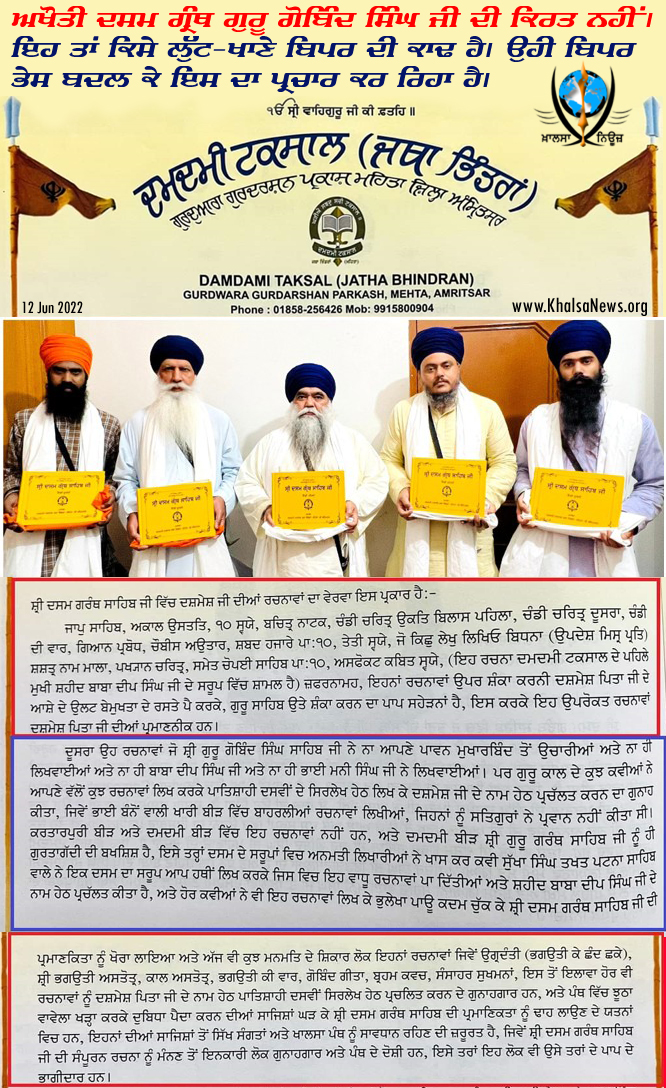 ਅਖੌਤੀ ਦਸਮ ਗ੍ਰੰਥ ਗੁਰੂ ਗੋਬਿੰਦ ਸਿੰਘ ਜੀ ਦੀ ਕਿਰਤ ਨਹੀਂ।
ਇਹ ਤਾਂ ਕਿਸੇ ਲੁੱਟ-ਖਾਣੇ ਬਿਪਰ ਦੀ ਕਾਢ ਹੈ। ਉਹੀ ਬਿਪਰ
ਭੇਸ ਬਦਲ ਕੇ ਇਸ ਦਾ ਪ੍ਰਚਾਰ ਕਰ ਰਿਹਾ ਹੈ।
ਖ਼ਾਲਸਾ ਨਿਊਜ਼
ੴ ਸ੍ਰੀ ਵਾਹਿਗੁਰੂ ਜੀ ਕੀ ਫ਼ਤਹਿ ॥
ਦਮਦਮੀ ਟਕਸਾਲ (ਜਥਾ ਭਿੰਡਰਾਂ)
ਗੁਰਦੁਆਰਾ ਗੁਰਦਰਸ਼ਨ ਪ੍ਰਕਾਸ਼ ਮਹਿਤਾ ਜ਼ਿਲਾ ਅੰਮ੍ਰਿਤਸਰ
ਦਮਦਮੀ ਟਕਸਾਲ
DAMDAMI TAKSAL (JATHA BHINDRAN)
GURDWARA GURDARSHAN PARKASH, MEHTA, AMRITSAR
Phone : 01858-256426 Mob: 9915800904
12 Jun 2022
www.KhalsaNews.org
ਸ੍ਰੀ ਦਸਮ ਗ੍ਰੰਥ ਸਾਹਿਬ ਜੀ
ਸ੍ਰੀ ਦਸਮ ਗ੍ਰੰਥ ਸਾਹਿਬ ਜੀ
ਸ੍ਰੀ ਦਸਮ ਗ੍ਰੰਥ ਸਾਹਿਬ ਜੀ
ਸ੍ਰੀ ਦਸਮ ਗ੍ਰੰਥ ਸਾਹਿਬ ਜੀ
ਸ੍ਰੀ ਦਸਮ ਗ੍ਰੰਥ ਸਾਹਿਬ ਜੀ
ਸ਼੍ਰੀ ਦਸਮ ਗਰੰਥ ਸਾਹਿਬ ਜੀ ਵਿੱਚ ਦਸ਼ਮੇਸ਼ ਜੀ ਦੀਆਂ ਰਚਨਾਵਾਂ ਦਾ ਵੇਰਵਾ ਇਸ ਪ੍ਰਕਾਰ ਹੈ:-
ਜਾਪੁ ਸਾਹਿਬ, ਅਕਾਲ ਉਸਤਤਿ, ੧੦ ਸ੍ਵਯੇ, ਬਚਿਤ੍ਰ ਨਾਟਕ, ਚੰਡੀ ਚਰਿਤ੍ਰ ਉਕਤਿ ਬਿਲਾਸ ਪਹਿਲਾ, ਚੰਡੀ ਚਰਿਤ੍ਰ ਦੂਸਰਾ, ਚੰਡੀ
ਦੀ ਵਾਰ, ਗਿਆਨ ਪ੍ਰਬੋਧ, ਚੌਬੀਸ ਅਉਤਾਰ, ਸ਼ਬਦ ਹਜਾਰੇ ਪਾ:੧੦, ਤੇਤੀ ਸ੍ਵਯੇ, ਜੋ ਕਿਛੁ ਲੇਖੁ ਲਿਖਿਓ ਬਿਧਨਾ (ਉਪਦੇਸ਼ ਮਿਸ੍ਰ ਪ੍ਰਤਿ)
ਸ਼ਸ਼ਤ੍ਰ ਨਾਮ ਮਾਲਾ, ਪਖਯਾਨ ਚਰਿਤ੍ਰ, ਸਮੇਤ ਚੋਪਈ ਸਾਹਿਬ ਪਾ:੧੦, ਅਸਫੋਕਟ ਕਬਿਤ ਸ੍ਵਯੇ, (ਇਹ ਰਚਨਾ ਦਮਦਮੀ ਟਕਸਾਲ ਦੇ ਪਹਿਲੇ
ਮੁਖੀ ਸ਼ਹੀਦ ਬਾਬਾ ਦੀਪ ਸਿੰਘ ਜੀ ਦੇ ਸਰੂਪ ਵਿੱਚ ਸ਼ਾਮਲ ਹੈ) ਜ਼ਫਰਨਾਮਹ, ਇਹਨਾਂ ਰਚਨਾਵਾਂ ਉਪਰ ਸ਼ੰਕਾ ਕਰਨੀ ਦਸ਼ਮੇਸ਼ ਪਿਤਾ ਜੀ ਦੇ
ਆਸ਼ੇ ਦੇ ਉਲਟ ਬੇਮੁਖਤਾ ਦੇ ਰਸਤੇ ਪੈ ਕਰਕੇ, ਗੁਰੂ ਸਾਹਿਬ ਉਤੇ ਸ਼ੰਕਾ ਕਰਨ ਦਾ ਪਾਪ ਸਹੇੜਨਾਂ ਹੈ, ਇਸ ਕਰਕੇ ਇਹ ਉਪਰੋਕਤ ਰਚਨਾਵਾਂ
ਦਸ਼ਮੇਸ਼ ਪਿਤਾ ਜੀ ਦੀਆਂ ਪ੍ਰਮਾਣਨੀਕ ਹਨ।
ਦੂਸਰਾ ਉਹ ਰਚਨਾਵਾਂ ਜੋ ਸ਼੍ਰੀ ਗੁਰੂ ਗੋਬਿੰਦ ਸਿੰਘ ਸਾਹਿਬ ਜੀ ਨੇ ਨਾ ਆਪਣੇ ਪਾਵਨ ਮੁਖਾਰਬਿੰਦ ਤੋਂ ਉਚਾਰੀਆਂ ਅਤੇ ਨਾ ਹੀ
ਲਿਖਵਾਈਆਂ ਅਤੇ ਨਾ ਹੀ ਬਾਬਾ ਦੀਪ ਸਿੰਘ ਜੀ ਅਤੇ ਨਾ ਹੀ ਭਾਈ ਮਨੀ ਸਿੰਘ ਜੀ ਨੇ ਲਿਖਵਾਈਆਂ। ਪਰ ਗੁਰੂ ਕਾਲ ਦੇ ਕੁਝ ਕਵੀਆਂ ਨੇ
ਆਪਣੇ ਵੱਲੋਂ ਕੁਝ ਰਚਨਾਵਾਂ ਲਿਖ ਕਰਕੇ ਪਾਤਿਸ਼ਾਹੀ ਦਸਵੀਂ ਦੇ ਸਿਰਲੇਖ ਹੇਠ ਲਿਖ ਕੇ ਦਸ਼ਮੇਸ਼ ਜੀ ਦੇ ਨਾਮ ਹੇਠ ਪ੍ਰਚੱਲਤ ਕਰਨ ਦਾ ਗੁਨਾਹ
ਕੀਤਾ, ਜਿਵੇਂ ਭਾਈ ਬੰਨੋਂ ਵਾਲੀ ਖਾਰੀ ਬੀੜ ਵਿੱਚ ਬਾਹਰਲੀਆਂ ਰਚਨਾਵਾਂ ਲਿਖੀਆਂ, ਜਿਹਨਾਂ ਨੂੰ ਸਤਿਗੁਰਾਂ ਨੇ ਪ੍ਰਵਾਨ ਨਹੀਂ ਕੀਤਾ ਸੀ।
ਕਰਤਾਰਪੁਰੀ ਬੀੜ ਅਤੇ ਦਮਦਮੀ ਬੀੜ ਵਿੱਚ ਇਹ ਰਚਨਾਵਾਂ ਨਹੀਂ ਹਨ, ਅਤੇ ਦਮਦਮੀ ਬੀੜ ਸ਼੍ਰੀ ਗੁਰੂ ਗਰੰਥ ਸਾਹਿਬ ਜੀ ਨੂੰ ਹੀ
ਗੁਰਤਾਗੱਦੀ ਦੀ ਬਖਸ਼ਿਸ਼ ਹੈ, ਇਸੇ ਤਰ੍ਹਾਂ ਦਸਮ ਦੇ ਸਰੂਪਾਂ ਵਿਚ ਅਨਮਤੀ ਲਿਖਾਰੀਆਂ ਨੇ ਖਾਸ ਕਰ ਕਵੀ ਸੁੱਖਾ ਸਿੰਘ ਤਖਤ ਪਟਨਾ ਸਾਹਬ
ਵਾਲੇ ਨੇ ਇਕ ਦਸਮ ਦਾ ਸਰੂਪ ਆਪ ਹਥੀਂ ਲਿਖ ਕਰਕੇ ਜਿਸ ਵਿਚ ਇਹ ਵਾਧੂ ਰਚਨਾਵਾਂ ਪਾ ਦਿੱਤੀਆਂ ਅਤੇ ਸ਼ਹੀਦ ਬਾਬਾ ਦੀਪ ਸਿੰਘ ਜੀ ਦੇ
ਨਾਮ ਹੇਠ ਪ੍ਰਚੱਲਤ ਕੀਤਾ ਹੈ, ਅਤੇ ਹੋਰ ਕਵੀਆਂ ਨੇ ਵੀ ਇਹ ਰਚਨਾਵਾਂ ਲਿਖ ਕੇ ਭੁਲੇਖਾ ਪਾਊ ਕਦਮ ਚੁੱਕ ਕੇ ਸ਼੍ਰੀ ਦਸਮ ਗਰੰਥ ਸਾਹਿਬ ਜੀ ਦੀ
ਪ੍ਰਮਾਣਿਕਤਾ ਨੂੰ ਖੋਰਾ ਲਾਇਆ ਅਤੇ ਅੱਜ ਵੀ ਕੁਝ ਮਨਮਤਿ ਦੇ ਸ਼ਿਕਾਰ ਲੋਕ ਇਹਨਾਂ ਰਚਨਾਵਾਂ ਜਿਵੇਂ ਉਗ੍ਰਦੰਤੀ (ਭਗਉਤੀ ਕੇ ਛੰਦ ਛਕੇ),
ਸ਼੍ਰੀ ਭਗਉਤੀ ਅਸਤੋਤ੍ਰ, ਕਾਲ ਅਸਤੋਤ੍ਰ, ਭਗਉਤੀ ਕੀ ਵਾਰ, ਗੋਬਿੰਦ ਗੀਤਾ, ਬ੍ਰਹਮ ਕਵਚ, ਸੰਸਾਹਰ ਸੁਖਮਨਾਂ, ਇਸ ਤੋਂ ਇਲਾਵਾ ਹੋਰ ਵੀ
ਰਚਨਾਵਾਂ ਨੂੰ ਦਸ਼ਮੇਸ਼ ਪਿਤਾ ਜੀ ਦੇ ਨਾਮ ਹੇਠ ਪਾਤਿਸ਼ਾਹੀ ਦਸਵੀਂ ਸਿਰਲੇਖ ਹੇਠ ਪ੍ਰਚਲਿਤ ਕਰਨ ਦੇ ਗੁਨਾਹਗਾਰ ਹਨ, ਅਤੇ ਪੰਥ ਵਿੱਚ ਝੂਠਾ
ਵਾਵੇਲਾ ਖੜ੍ਹਾ ਕਰਕੇ ਦੁਬਿਧਾ ਪੈਦਾ ਕਰਨ ਦੀਆਂ ਸਾਜਿਸ਼ਾਂ ਘੜ ਕੇ ਸ਼੍ਰੀ ਦਸਮ ਗਰੰਥ ਸਾਹਿਬ ਦੀ ਪ੍ਰਮਾਣਿਕਤਾ ਨੂੰ ਢਾਹ ਲਾਉਣ ਦੇ ਯਤਨਾਂ
ਵਿਚ ਹਨ, ਇਹਨਾਂ ਦੀਆਂ ਸਾਜਿਸ਼ਾਂ ਤੋਂ ਸਿੱਖ ਸੰਗਤਾਂ ਅਤੇ ਖਾਲਸਾ ਪੰਥ ਨੂੰ ਸਾਵਧਾਨ ਰਹਿਣ ਦੀ ਜ਼ਰੂਰਤ ਹੈ, ਜਿਵੇਂ ਸ਼੍ਰੀ ਦਸਮ ਗਰੰਥ ਸਾਹਿਬ
ਜੀ ਦੀ ਸੰਪੂਰਨ ਰਚਨਾ ਨੂੰ ਮੰਨਣ ਤੋਂ ਇਨਕਾਰੀ ਲੋਕ ਗੁਨਾਹਗਾਰ ਅਤੇ ਪੰਥ ਦੇ ਦੋਸ਼ੀ ਹਨ, ਇਸੇ ਤਰਾਂ ਇਹ ਲੋਕ ਵੀ ਉਸੇ ਤਰਾਂ ਦੇ ਪਾਪ ਦੇ
ਭਾਗੀਦਾਰ ਹਨ।